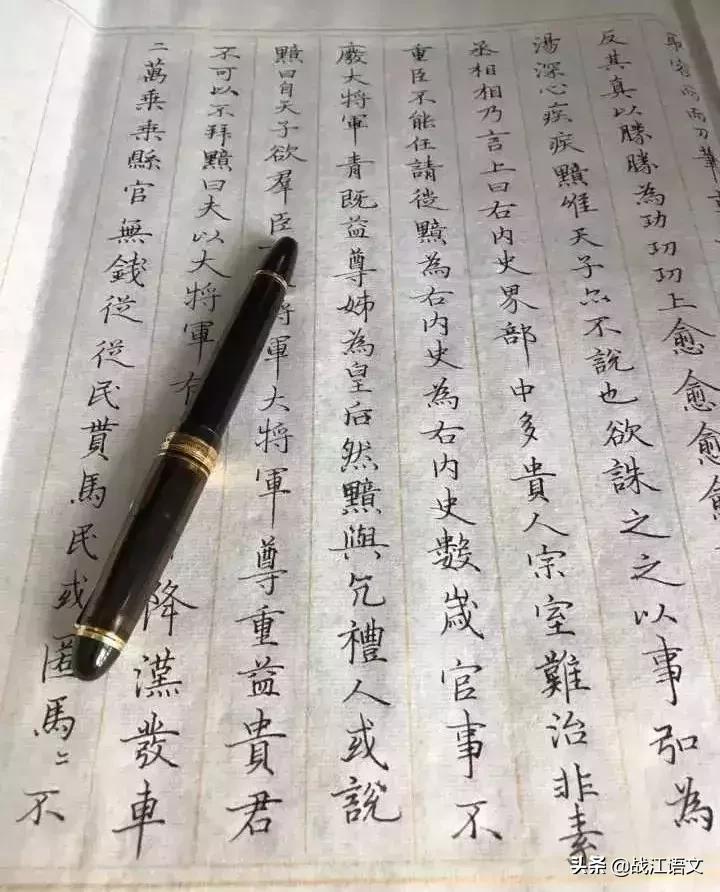 刀筆
反其真以勝勝為功功功上愈愈愈愈
湯深心疾疾黯唯天子亦不說也欲誅之之以事弘為
丞相相乃言上曰右內史界部中多貴人宗室難治非素
重臣不能任請徙黯為右內史為右內史數歲官事不
廢大將軍青既益尊姊為皇后然黯與亢禮人或說
黯曰自天子欲羣臣將軍大將軍尊重益貴君
不可以不拜黯曰夫以大將軍有降漢發車
二萬乘乘縣官無錢從從民貰馬民或匿馬〻不
头条 @战江语文